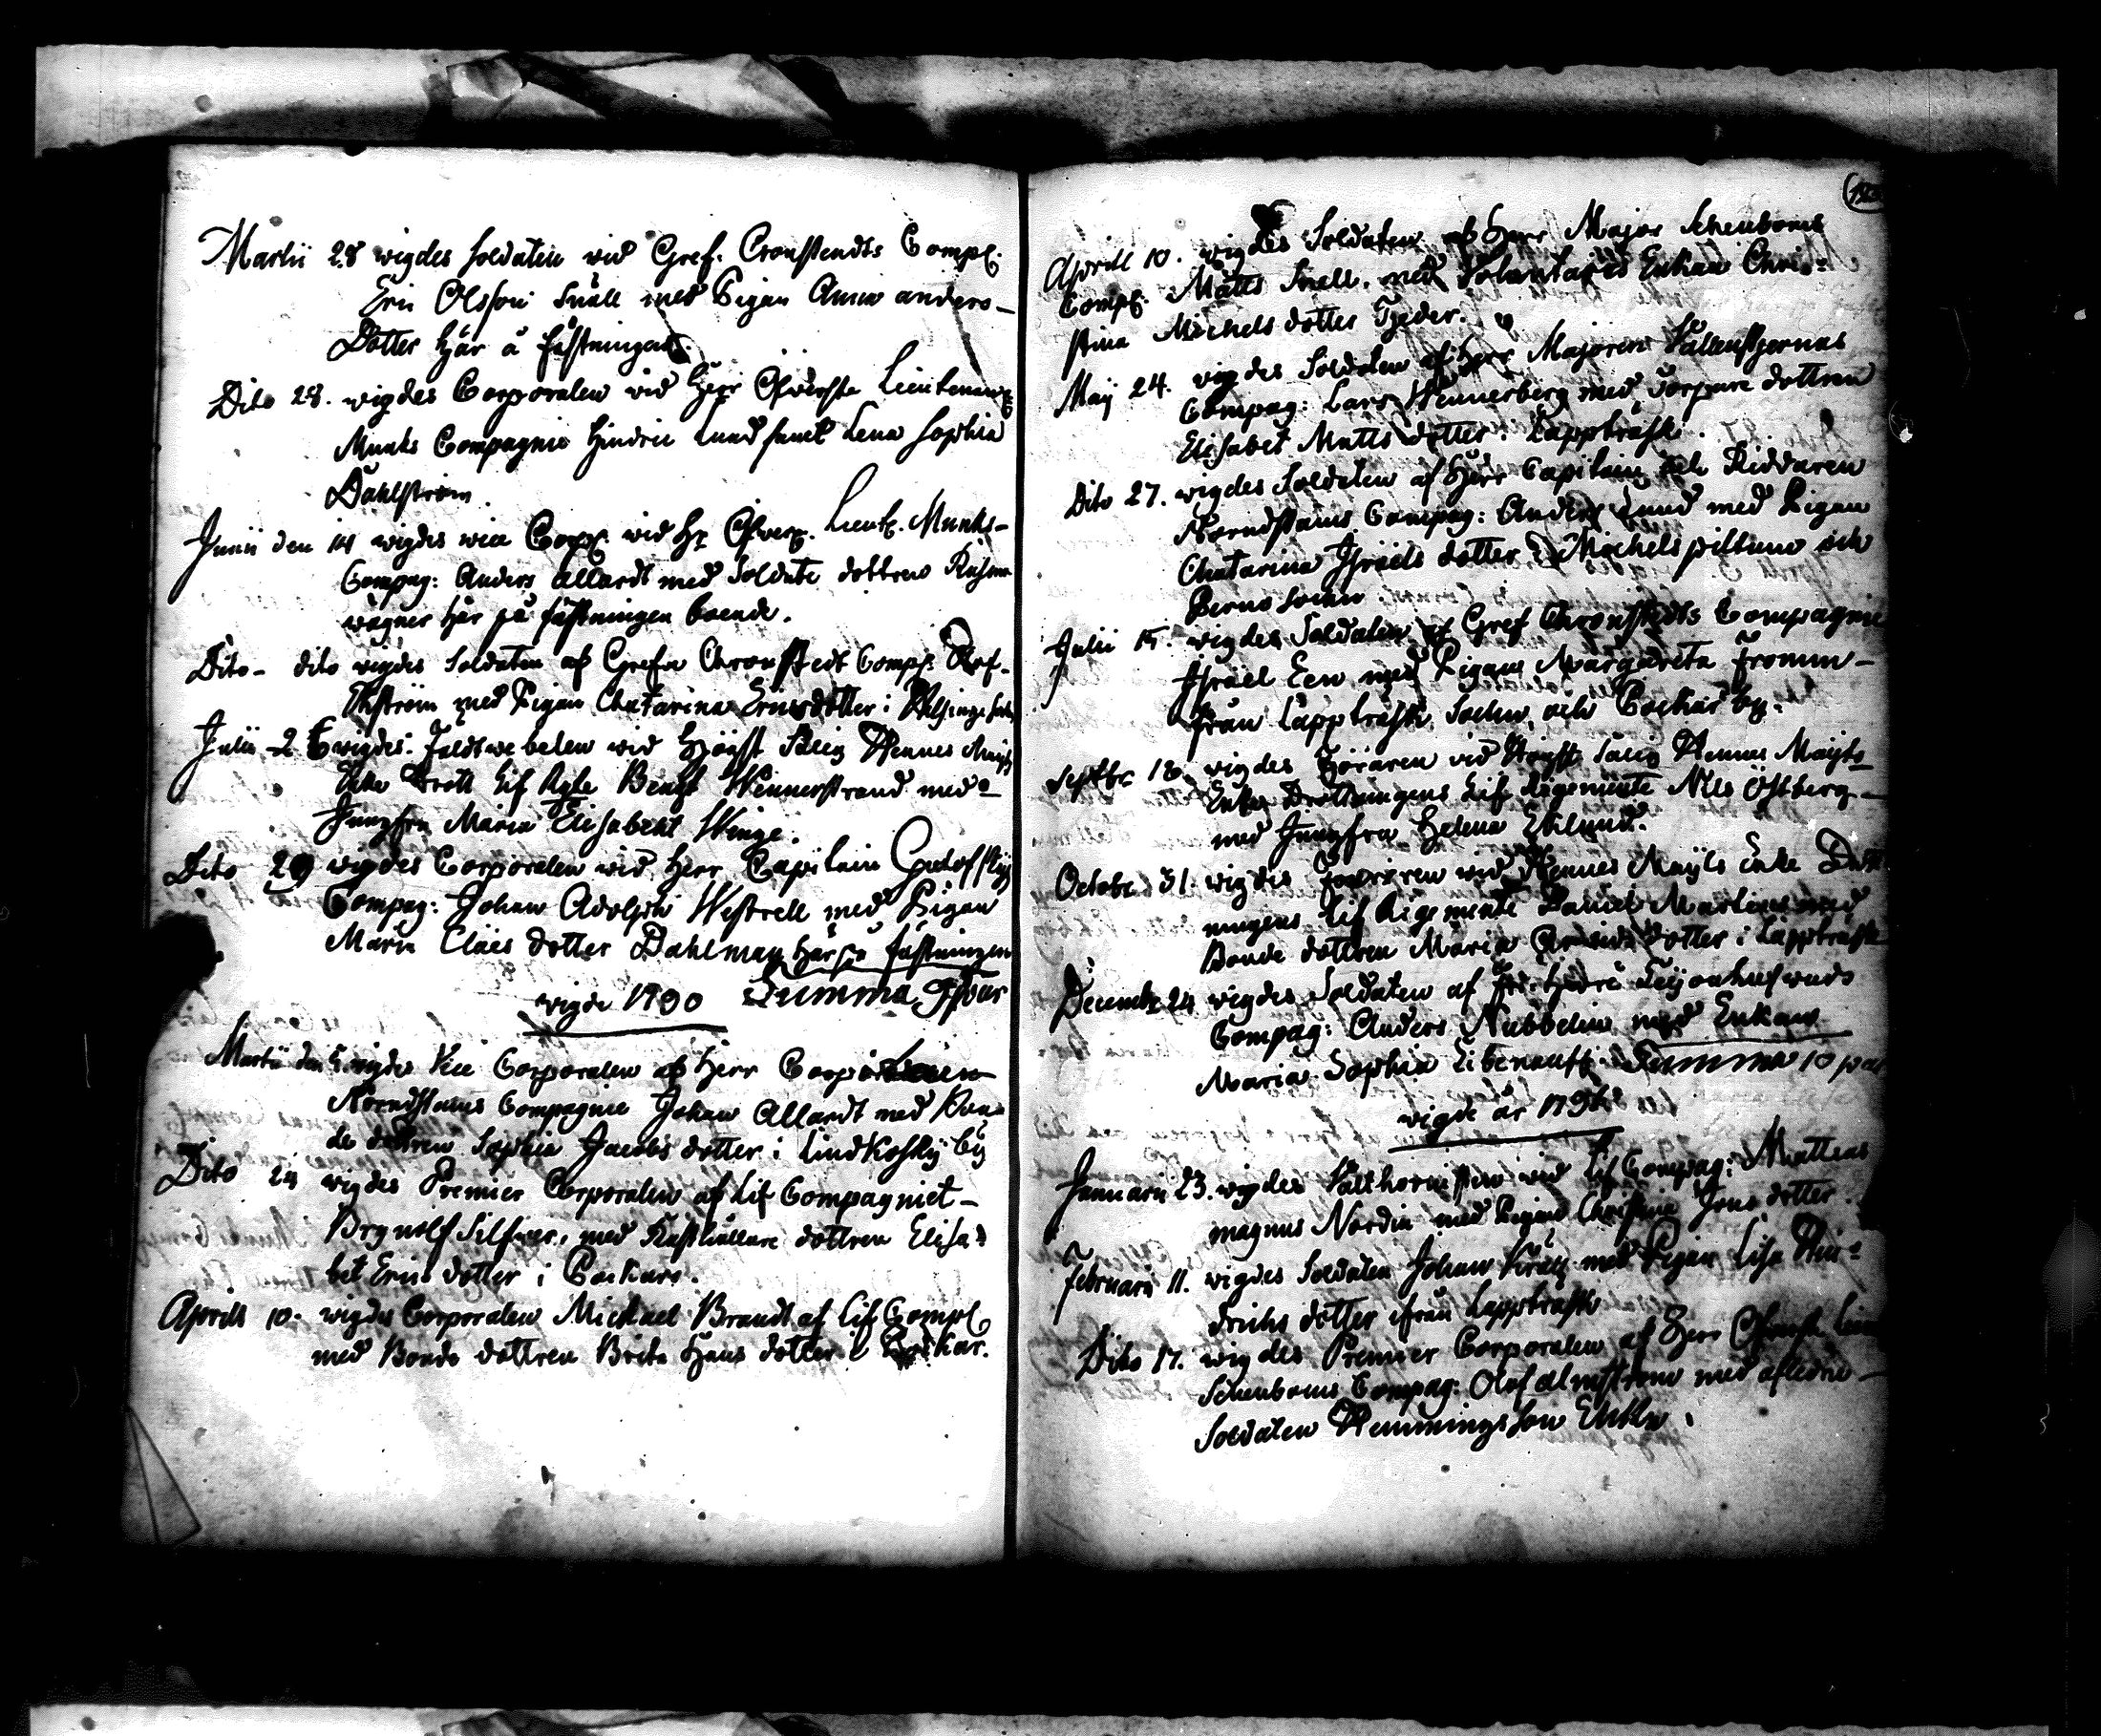 Martii 28 wigdes Soldaten wid Gref. Cronstendts Comp.
Eric Olsson Snäll med Pigan Anna anders-
Dotter här å fästningen.
Dito 28. wigdes Corporalen wid Herr Öfwersta Lieutenant
Munks Compagnie Hindric Lund samt Lena Sophia
Dahlström.
Junii den 14 wigdes wice Corp. wid Hr Öfwer. Lieut. Munks-
Compag: Anders Allardt med Soldate dottren
wägner här på fästningen boende.
Dito - dito wigdes Soldaten af Grefve Cronstedt Comp.
med Pigan Chatarina Ericsdotter i
Julii - 2 wigdes Feldtwebelen wid Högst Salig Hennes Maijts
Enke Drott Lif Rgte Bengt Wennerstrand med-
Jungfru Maria Elisabeht Winge.
Dito 29 wigdes Corporalen wid Herr Capitain
Compag: Johan Adolph Westrell med Pigan
Maria Claes dotter Dahlman här på fästningen
wigde 1790 Summa 9 par
Martii den 5. wigdes Vice Corporalen af Herr
Compagnie Johan Allardt med Bon-
de dottren Sophia Jacobs dotter i Lindkoski by
Dito 24 wigdes Premier Corporalen af Lif Compagniet-
Brynolf Silfwer, med Rusthållare dottren Elisa-
bet Erics dotter i Backars.
Aprill 10. wigdes Corporalen Michael Brandt af Lif Comp.
med Bonde dottren Brita Hans dotter i Backar.
Aprill 10. wigdes Soldaten af Herr Major Scheuboms
Comp. Matts Snell, med Volontairs Enkan Chri-
stina Michels dotter Tjeder.
Maij 24. wigdes Soldaten af Herr Majoren
Compag: Lars Wennerberg med Torpare dottren
Elisabet Matts dotter. Lappträsk.
Dito 27. wigdes Soldaten af Herr Capitain och Riddaren
Compag: Anders Lund med Pigan
Chatarina Israels dotter i Michelspiltom och
Perno Sochn.
Julii 15. wigdes Soldaten af Gref Chronstedts Compagnie
Israel Een med Pigan Margareta Fromm-
från Lappträsk Sochn, och Backar by.
Septbr 18. wigdes Föraren wid Högst Salig Hennes Maijts-
Enke Drottningens Lif Regemente Nils Östberg-
med Jungfru Helena Eklund.
Octobr. 31. wigdes Fouriren wid Hennes Maijts Enke Drott
ningens Lif Regemente Daniel Martin med
Bonde dottren Maria dotter i Lappträsk
Decembr 24 wigdes Soldaten af Fri Herre Leijonhufwuds
Compag: Anders Nubbelin med Enkan
Maria Sophia Summa 10 par
wigde år
Januarii 23. wigdes Valthornisten wid Lif Compag: Matteas
magnus Nordin med Pigan Christina Jons dotter.
Februarii 11. wigdes Soldaten Johan med Pigan Lisa Hin-
drichs dotter ifrån Lappträsk
Dito 17. wigdes Premier Corporalen af Herr Öfwerst. Lieut
Scheuboms Compag: Olof Almström med afledne-
Soldaten Hemmingsson Enka.